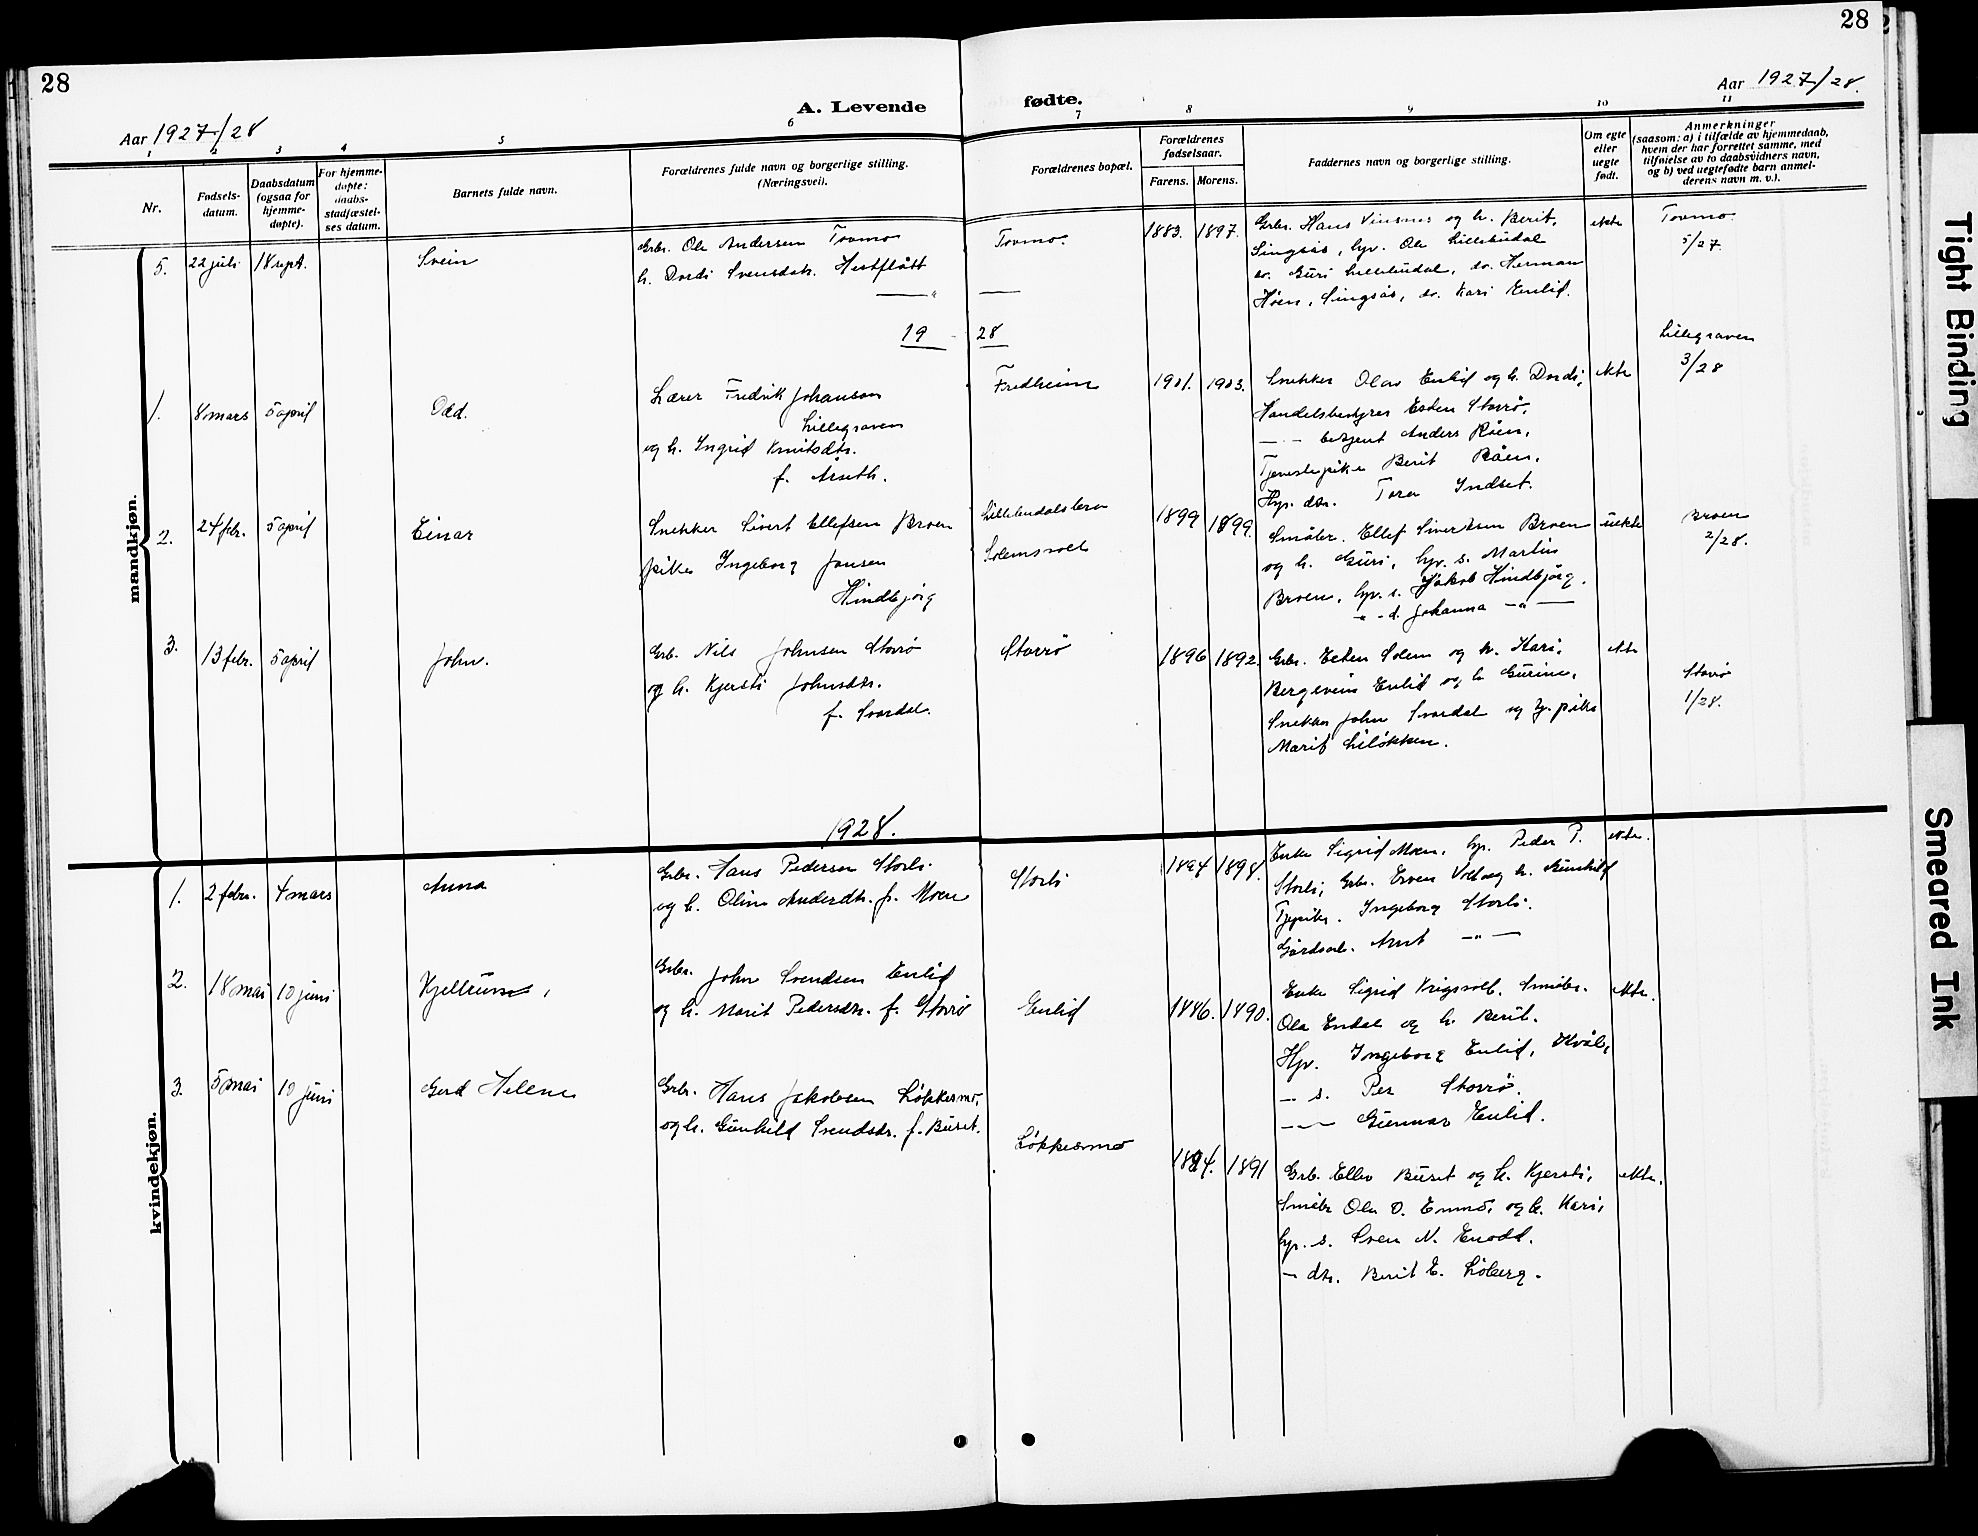 28
28
Aar 1927/28
A. Levende fødte.
Aar 1927/28.
1 2 3 4 5 6 7 8 9 10 11
Nr.
Fødsels-
datum.
Daabsdatum
(ogsaa for
hjemme-
døpte).
For hjemme-
døpte:
daabs-
stadfæstel-
ses datum.
Barnets fulde navn.
Forældrenes fulde navn og borgerlige stilling.
(Næringsvei).
Forældrenes bopæl.
Forældrenes
fødselsaar.
Farens. Morens.
Faddernes navn og borgerlige stilling.
Om egte
eller
uegte
født.
Anmerkninger
(saasom: a) i tilfælde av hjemmedaab,
hvem der har forrettet samme, med
tilføielse av to daabsvidners navn,
og b) ved uegtefødte barn anmel-
derens navn m. v.).
mandkjøn.
5. 22 juli 18 sept. Svein
Grbr. Ole Andersen Tovmo
h. Dordi Svensdtr. Hestflått
Tovmo.
1883. 1897.
Grbr. Hans Vinsnes og h. Berit,
Singsås, hp. Ole Lillebudal
do. Guri Lillebudal, do. Herman
Höen, Singsås, do. Kari Enlid.
ekte
Tovmo
5/27.
19 28
1. 8 mars 5 april Odd.
Lærer Fredrik Johansen
Lillegraven
og h. Ingrid Knutsdtr.
f. Årseth.
Fredheim
1901. 1903.
Snekker Olav Enlid og h. Dordi,
Handelsbestyrer Esten Storrö,
— - betjent Anders Röen,
Tjenestepike Berit Röen,
Hp. dtr. Tora Indset.
ekte
Lillegraven
3/28
2. 24 febr. 5 april Einar
Snekker Sivert Ellefsen Broen
pike Ingeborg Jonsen
Hindbjørg
Lillebudalsbroen
Solemsvoll
1899 1899.
Småbr. Ellef Sivertsen Broen
og h. Guri, hp. s. Martin
Broen, hp. s. Jakob Hindbjörg.
" - d. Johanna — " —
uekte
Broen
2/28.
3. 13 febr. 5 april John.
Grb. Nils Johnsen Storrö
og h. Kjersti Johnsdtr.
f. Svardal.
Storrö
1896 1892.
Grbr. Esten Solem og h. Kari,
Bergsvein Enlid og h. Gurine,
Snekker John Svardal og tj. pike
Marit Liløkken.
ekte
Storrö
1/28.
1928.
kvindekjøn.
1. 2 febr. 4 mars Anna
Grbr. Hans Pedersen Storli
og h. Oline Andersdtr. f. Moen
Storli
1894 1898.
Enke Sigrid Moen, hp. Peder P.
Storli, Grbr. Even Voll og h. Gunhild
Tjpike. Ingeborg Storli.
Gårdsarb. Arnt — " —
ekte.
2. 18 mai 10 juni Kjellrun
Grbr. John Svendsen Enlid
og h. Marit Pedersdtr. f. Storrö
Enlid
1886. 1890.
Enke Sigrid Krigsvoll. Småbr.
Ola Endal og h. Berit.
Hp. Ingeborg Enlid, Kvål,
— s. Per Storrö.
— — Gunnar Enlid.
ekte.
3. 5 mai 10 juni Gerd Helene
Grbr. Hans Jakobsen Løkkesmo,
og h. Gunhild Svendsdr. f. Buset.
Løkkesmo
1894. 1891
Grb. Ellev Buset og h. Kjersti,
Småbr Ola O. Enmo, og h. Kari,
hp. s. Sven N. Enodd.
— dtr. Berit E. Löberg.
ekte.
Tight Binding
Smeared Ink